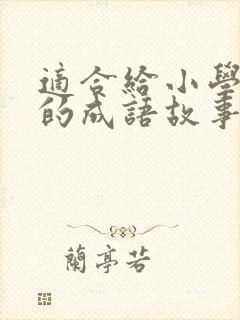 適合給小學
的成語故事
蘭亭若